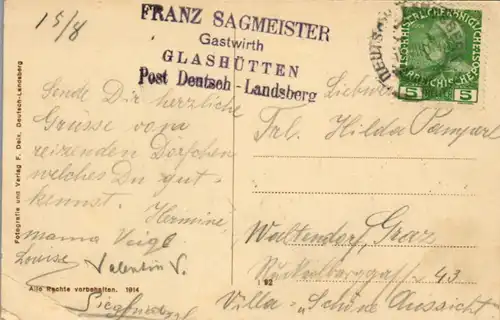 15/8
FRANZ SAGMEISTER
Gastwirth
GLASHÜTTEN
Post Deutsch-Landsberg
Sende Dir herzliche
Grüsse vom
reizenden Dörfchen
welches Du gut
kennst. Hermine
mama Voigt
Louise Valentin V.
Siegfried
Liebwerte
Frl. Hilda Pamperl
Waltendorf, Graz
43
Villa "Schöne Aussicht
5 5
Fotografie und Verlag F. Deix, Deutsch-Landsberg
Alle Rechte vorbehalten. 1914
1 92